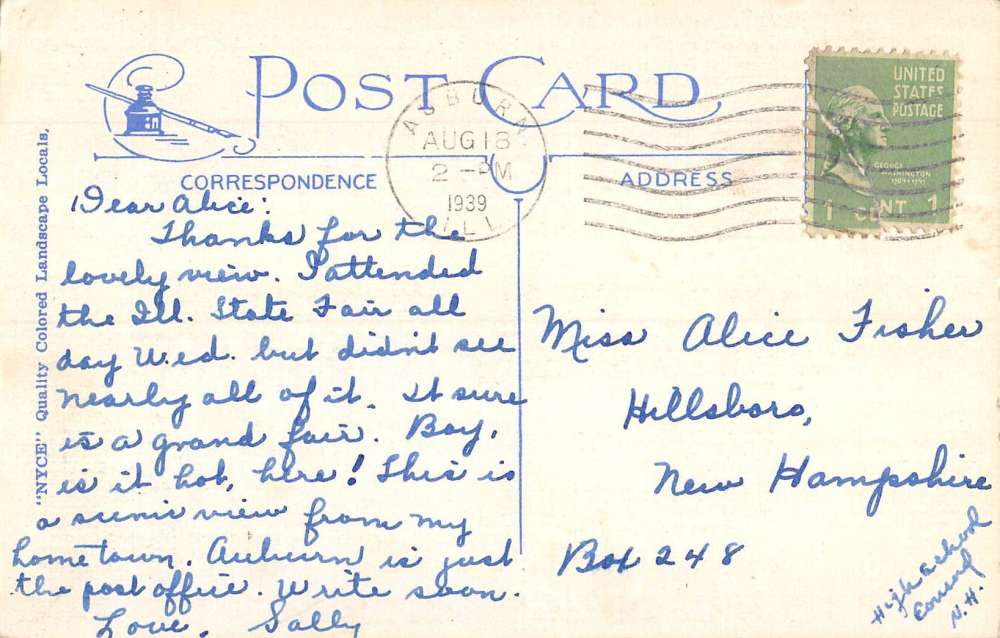 POST CARD
AUBURN
AUG 18
2 - PM
1939
ILL.
UNITED
STATES
POSTAGE
GEORGE
WASHINGTON
1789-1797
1 CENT 1
CORRESPONDENCE
ADDRESS
"NYCE" Quality Colored Landscape Locals.
Dear Alice:
Thanks for the
lovely view. I attended
the Ill. State Fair all
day Wed. but didn't see
nearly all of it. It sure
is a grand fair. Boy,
is it hot, here! This is
a scenic view from my
home town. Auburn is just
the post office. Write soon.
Love, Sally
Miss Alice Fisher
Hillsboro,
New Hampshire
Box 248
High school
N.H.